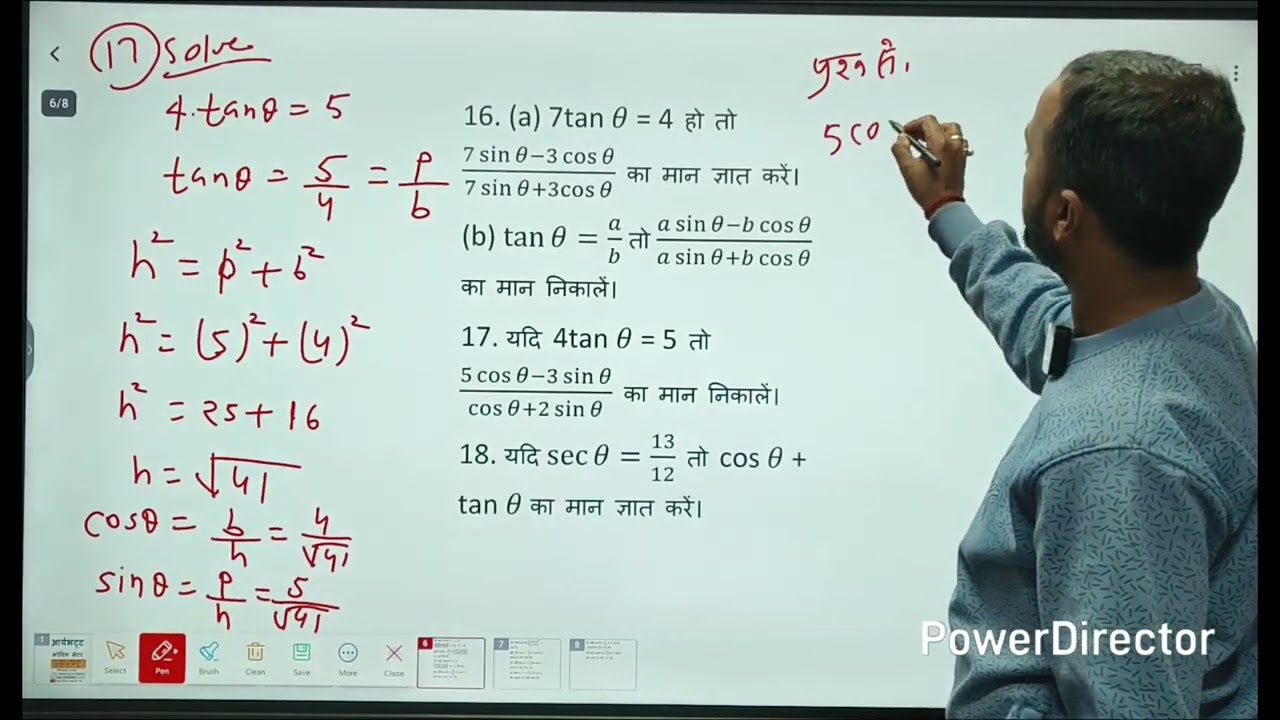 17 Solve
4.tanθ = 5
tanθ = 5/4 = p/b
h² = p² + b²
h² = (5)² + (4)²
h² = 25 + 16
h = √41
cosθ = b/h = 4/√41
sinθ = p/h = 5/√41
6/8
16. (a) 7tan θ = 4 हो तो
(7 sin θ−3 cos θ)/(7 sin θ+3cos θ) का मान ज्ञात करें।
(b) tan θ = a/b तो (a sin θ−b cos θ)/(a sin θ+b cos θ)
का मान निकालें।
17. यदि 4tan θ = 5 तो
(5 cos θ−3 sin θ)/(cos θ+2 sin θ) का मान निकालें।
18. यदि sec θ = 13/12 तो cos θ +
tan θ का मान ज्ञात करें।
प्रश्न से,
5 co
1 आर्यभट्ट
Select Pen Brush Clean Save More Close
6 7 8
PowerDirector